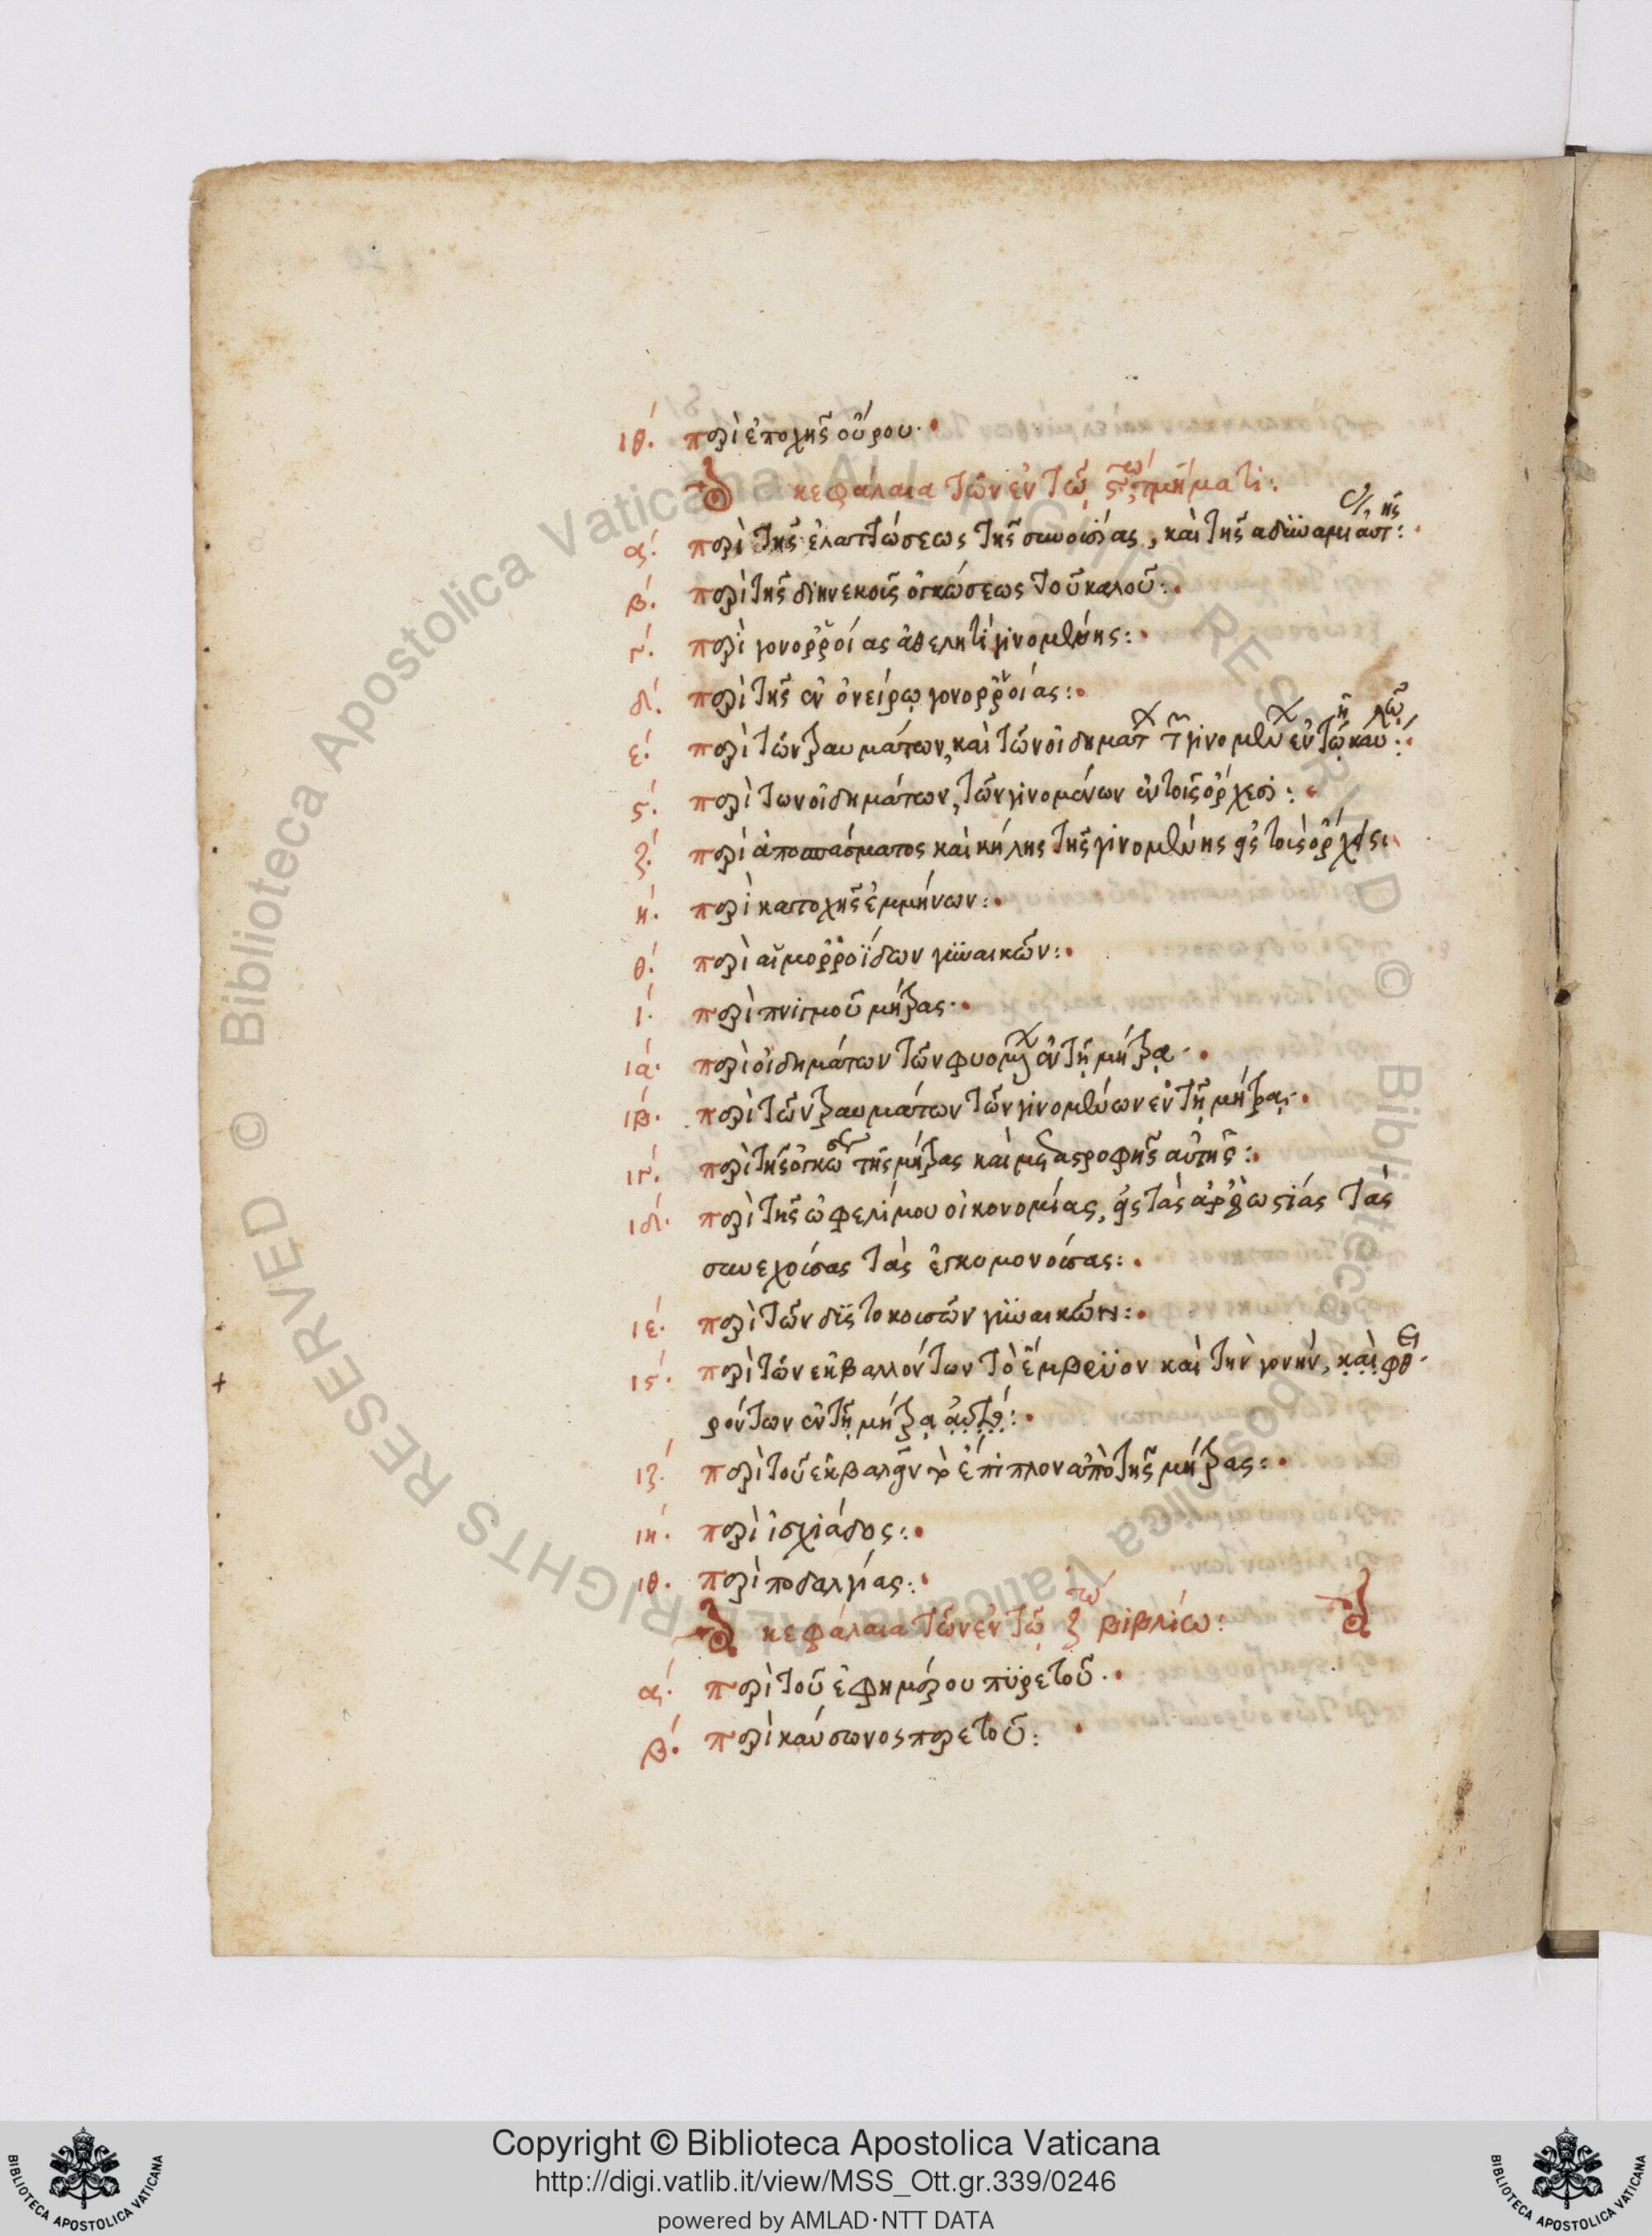 ιθ. περὶ ἐποχῆς οὔρου
κεφάλαια τῶν ἐν τῶ ϛω τμήματι:
α. περὶ τῆς ἐλαττώσεως τῆς συνοισίας, καὶ τῆς αδυναμι αυτης:
β. περὶ τῆς διηνεκοῦς ὀγκώσεως τοῦ καλοῦ:
γ. περὶ γονορροίας ἀθελητὶ γινομένης:
δ. περὶ τῆς ἐν ὀνείρω γονορροίας:
ε. περὶ τῶν τραυμάτων, καὶ τῶν οἰδημάτων τῶν γινομένων ἐν τῶ καυλῶ:
ϛ. περὶ των οἰδημάτων, τῶν γινομένων ἐν τοῖς ὄρχεσι:
ζ. περὶ ἀποσπάσματος καὶ κήλης τῆς γινομένης εἰς τοὺς ὄρχεις
η. περὶ κατοχῆς ἐμμήνων:
θ. περὶ αἱμορροΐδων γυναικῶν:
ι. περὶ πνιγμοῦ μήτρας
ια. περὶ οἰδημάτων τῶν φυομένων ἐν τῆ μήτρα
ιβ. περὶ τῶν τραυμάτων τῶν γινομένων ἐν τῆ μήτρα
ιγ. περὶ τῆς ὀγκώσεως τῆς μήτρας καὶ μεταστροφῆς αὐτῆς:
ιδ. περὶ τῆς ὠφελίμου οἰκονομίας, εἰς τὰς ἀρρωστίας τὰς
συνεχούσας τὰς ἐγκυμονούσας:
ιε. περὶ τῶν δυστοκουσῶν γυναικῶν:
ιϛ. περὶ τῶν ἐκβαλλόντων τὸ ἔμβρυον καὶ τὴν γονὴν, καὶ φθει
ρόντων ἐν τῆ μήτρα αὐτό:
ιζ. περὶ τοῦ ἐκβαλεῖν τὸ ἐπίπλον ἀπὸ τῆς μήτρας:
ιη. περὶ ἰσχιάδος:
ιθ. περὶ ποδαλγίας:
κεφάλαια τῶν ἐν τῶ ζτω βιβλίω:
α. περὶ τοῦ ἐφημέρου πυρετοῦ
β. περὶ καύσωνος πυρετοῦ:
Copyright © Biblioteca Apostolica Vaticana
http://digi.vatlib.it/view/MSS_Ott.gr.339/0246
powered by AMLAD·NTT DATA
BIBLIOTECA APOSTOLICA VATICANA
BIBLIOTECA APOSTOLICA VATICANA
© Biblioteca Apostolica Vaticana ALL RIGHTS RESERVED © Biblioteca Apostolica Vaticana ALL RIGHTS RESERVED